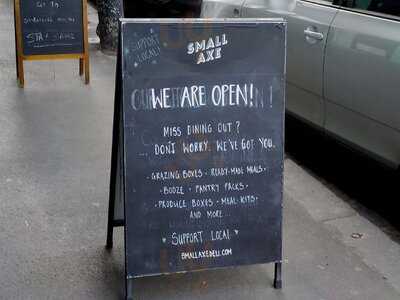 SUPPORT
LOCAL!
SMALL
AXE
WE ARE OPEN!
MISS DINING OUT?
... DON'T WORRY, WE'VE GOT YOU.
· GRAZING BOXES · READY-MADE MEALS ·
· BOOZE · PANTRY PACKS ·
· PRODUCE BOXES · MEAL KITS ·
AND MORE...
SUPPORT LOCAL
SMALLAXEDELI.COM